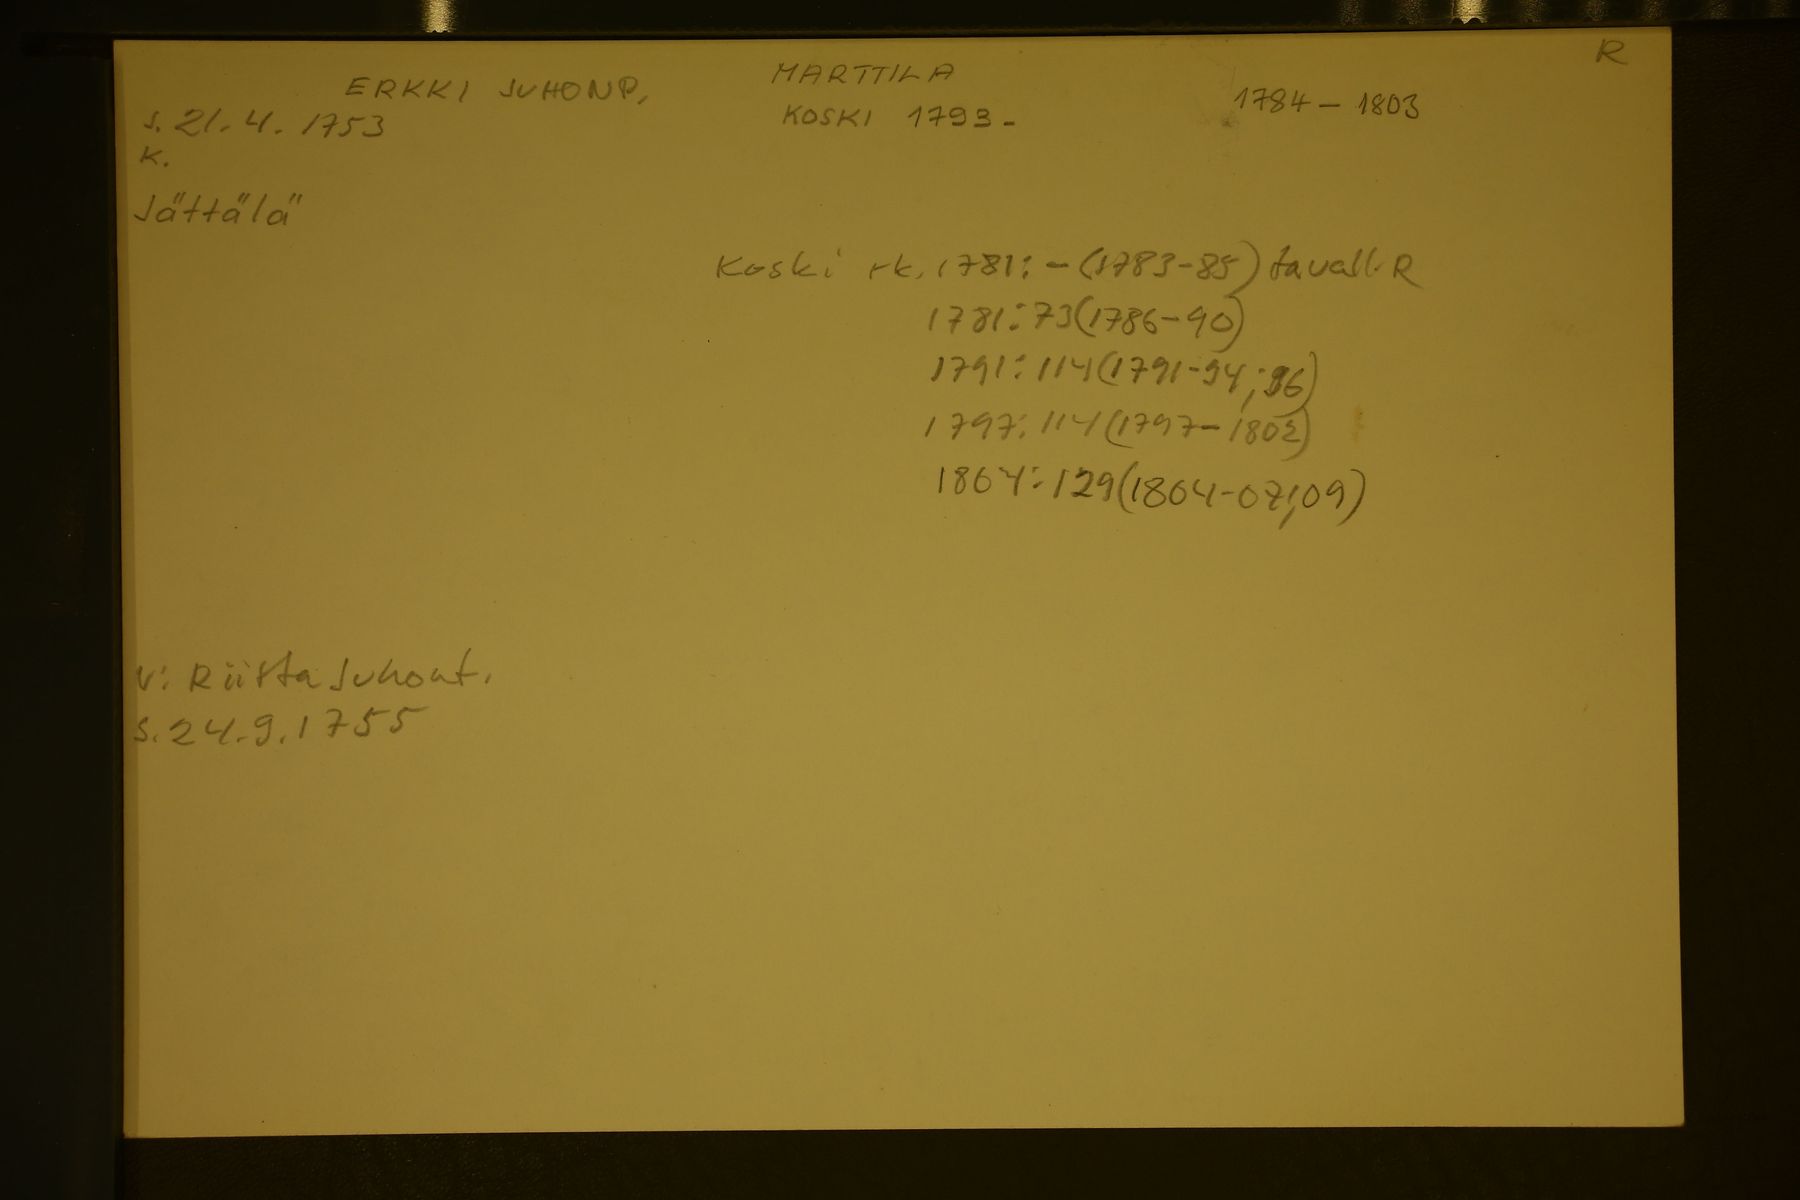 R
ERKKI JUHONP. MARTTILA 1784 – 1803
s. 21.4.1753 KOSKI 1793-
K.
Jättälä
Koski rk. 1781: - (1783-85) tavall. R
1781: 73 (1786-90)
1791: 114 (1791-94, 96)
1797: 114 (1797-1802)
1804: 129 (1804-07, 09)
v: Riitta Juhont.
s. 24.9.1755